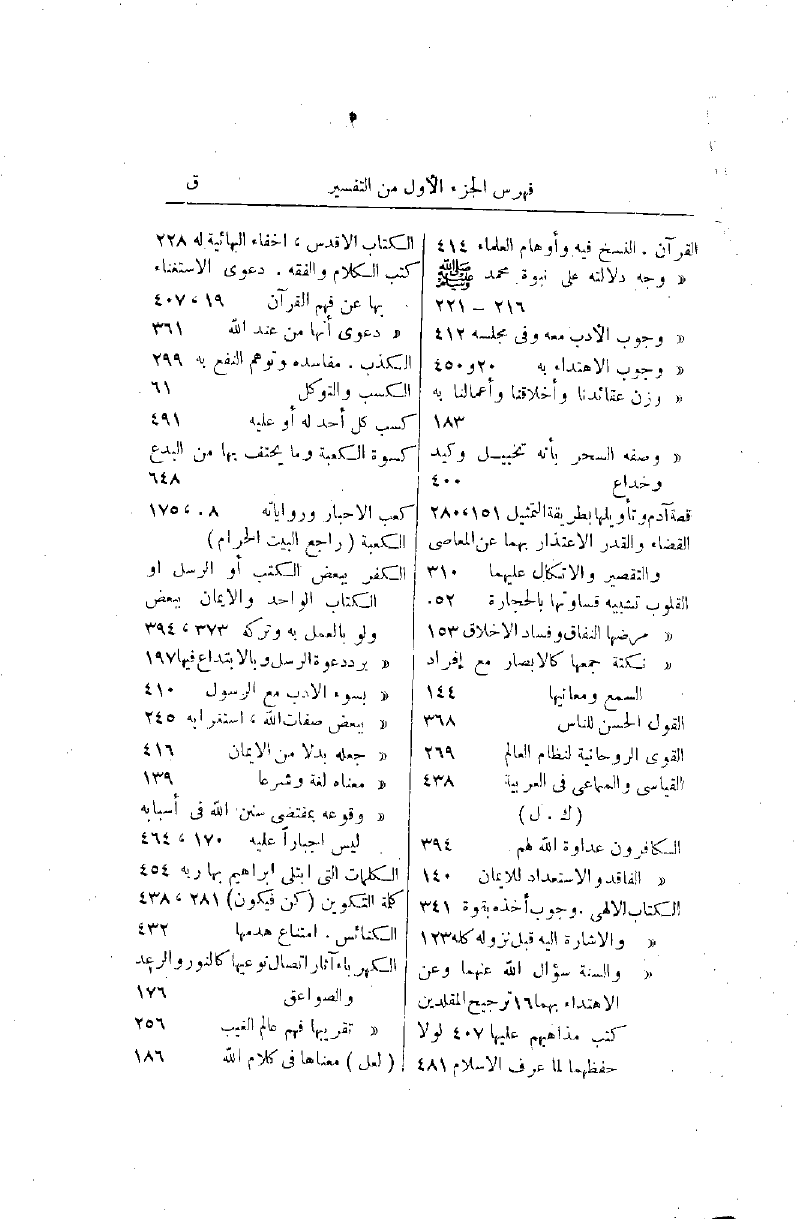 فهرس الجزء الأول من التفسير ق
القرآن . النسخ فيه وأوهام العلماء ٤١٤
« وجه دلالته على نبوة محمد ﷺ
٢١٦ - ٢٢١
« وجوب الأدب معه وفى مجلسه ٤١٢
« وجوب الاهتداء به ٢٠ و ٤٥٠
« وزن عقائدنا وأخلاقنا وأعمالنا به
١٨٣
« وصفه السحر بأنه تخييل وكيد
وخداع ٤٠٠
قصة آدم وتأويلها بطريقة التمثيل ١٥١ ، ٢٨٠
القضاء والقدر الاعتذار بهما عن المعاصى
والتقصير والاتكال عليهما ٣١٠
القلوب تشبيه قساوتها بالحجارة ٠٥٢
« مرضها النفاق وفساد الاخلاق ١٥٣
« نكتة جمعها كالابصار مع إفراد
السمع ومعانيها ١٤٤
القول الحسن للناس ٣٦٨
القوى الروحانية لنظام العالم ٢٦٩
القياسى والسماعى فى العربية ٤٣٨
( ك . ل )
الكافرون عداوة الله لهم ٣٩٤
« الفاقدو الاستعداد للايمان ١٤٠
الكتاب الالهى . وجوب أخذه بقوة ٣٤١
« والاشارة اليه قبل نزوله كله ١٢٣
« والسنة سؤال الله عنهما وعن
الاهتداء بهما ١٦ ترجيح المقلدين
كتب مذاهبهم عليها ٤٠٧ لولا
حفظهما لما عرف الاسلام ٤٨١
الكتاب الاقدس ، اخفاء البهائية له ٢٢٨
كتب الكلام والفقه . دعوى الاستغناء
بها عن فهم القرآن ١٩ ، ٤٠٧
« دعوى أنها من عند الله ٣٦١
الكذب . مفاسده وتوهم النفع به ٢٩٩
الكسب والتوكل ٦١
كسب كل أحد له أو عليه ٤٩١
كسوة الكعبة وما يحتف بها من البدع
٦٤٨
كعب الاحبار ورواياته ٠٨ ، ١٧٥
الكعبة ( راجع البيت الحرام )
الكفر ببعض الكتب أو الرسل او
الكتاب الواحد والايمان ببعض
ولو بالعمل به وتركه ٣٧٣ ، ٣٩٤
« برد دعوة الرسل وبالابتداع فيها ١٩٧
« بسوء الادب مع الرسول ٤١٠
« ببعض صفات الله ، استغرابه ٢٤٥
« جعله بدلا من الايمان ٤١٦
« معناه لغة وشرعا ١٣٩
« وقوعه بمقتضى سنن الله فى أسبابه
ليس اجباراً عليه ١٧٠ ، ٤٦٤
الكلمات التى ابتلى ابراهيم بها ربه ٤٥٤
كلمة التكوين (كن فيكون) ٢٨١ ، ٤٣٨
الكنائس . امتناع هدمها ٤٣٢
الكهرباء آثار اتصال نوعيها كالنور والرعد
والصواعق ١٧٦
« تقريبها فهم عالم الغيب ٢٥٦
( لعل ) معناها فى كلام الله ١٨٦